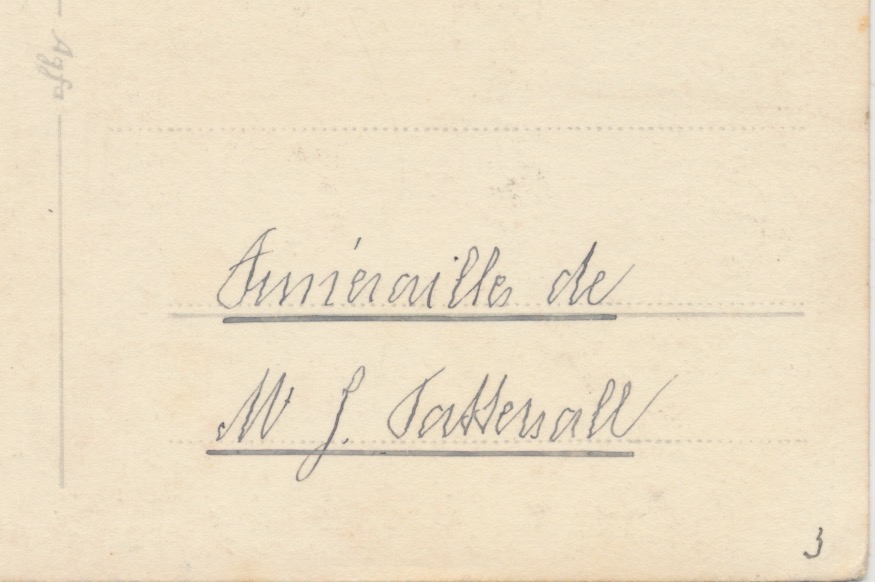 Agfa
Funérailles de
Mr J. Tattersall
3